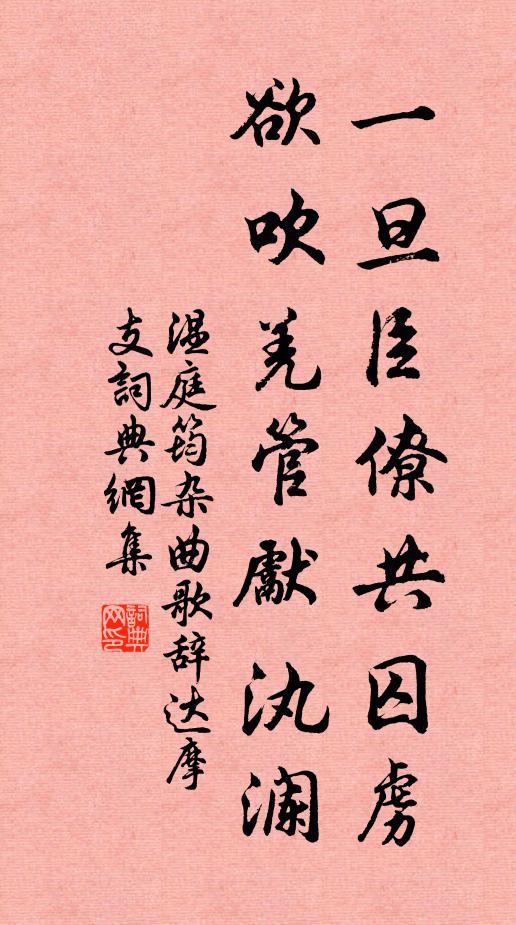 一旦臣僚共囚虏
欲吹羌管獻汍澜
温庭筠杂曲歌辞达摩
支詞典網集
詞典网印